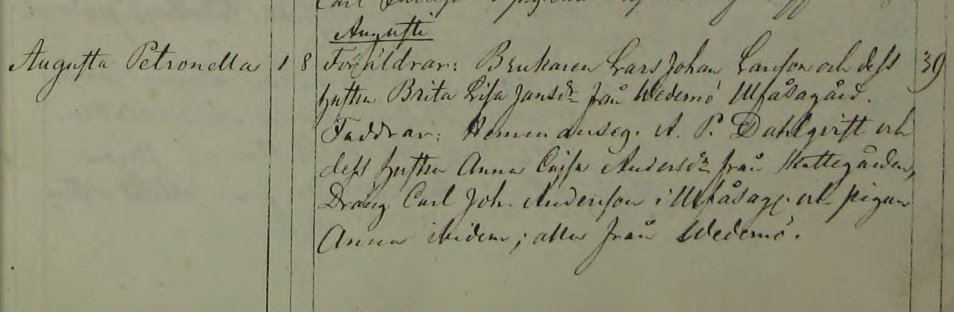 Augusti
Augusta Petronella 1 8 Föräldrar: Brukaren Lars Johan Larsson och dess 39
hustru Brita Lisa Jansdr från Wedemö Ulfåsagård.
Faddrar: Hemmanseg. A. P. Dahlqvist och
dess hustru Anna Cajsa Andersdr från Stattegården,
Dräng Carl Joh. Anderson i Ulfåsag. och pigan
Anna ibidem; alla från Wedemö.